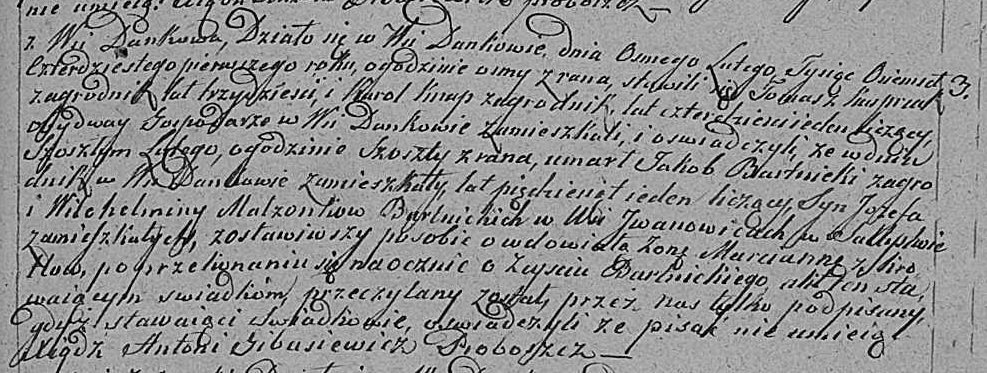 nie umieią. Xiądz
z Wsi Dankowa, Działo się w Wsi Dankowie, dnia Osmego Lutego, Tysiąc Ośmset 3.
Czterdziestego pierwszego roku, o godzinie osmy z rana, stawili się Tomasz Kasprzak
zagrodnik lat trzydzieści, i Karol Knap zagrodnik, lat czterdzieści ieden liczący,
obydway Gospodarze w Wsi Dankowie zamieszkali, i oswiadczyli, że w dniu
Szosztym Lutego, o godzinie Szoszty z rana, umarł Jakob Bartnicki zagro
dnik w Wsi Dankowie zamieszkały, lat pięćdziesiąt ieden liczący, Syn Jozefa
i Wilehelminy Malzonkow Bartnickich w Wsi Jwanowicach w
zamieszkałych, zostawiwszy po sobie owdowiałą żonę Mariannę z
kow, po przekonaniu się naocznie o Zeyściu Bartnickiego, akt ten sta,
waiącym swiadkom, przeczytany został, przez nas tylko podpisany,
gdyż stawaiąci Swiadkowie, oswiadczyli że pisać nie umieią
Xiądz Antoni Gibasiewicz Proboszcz